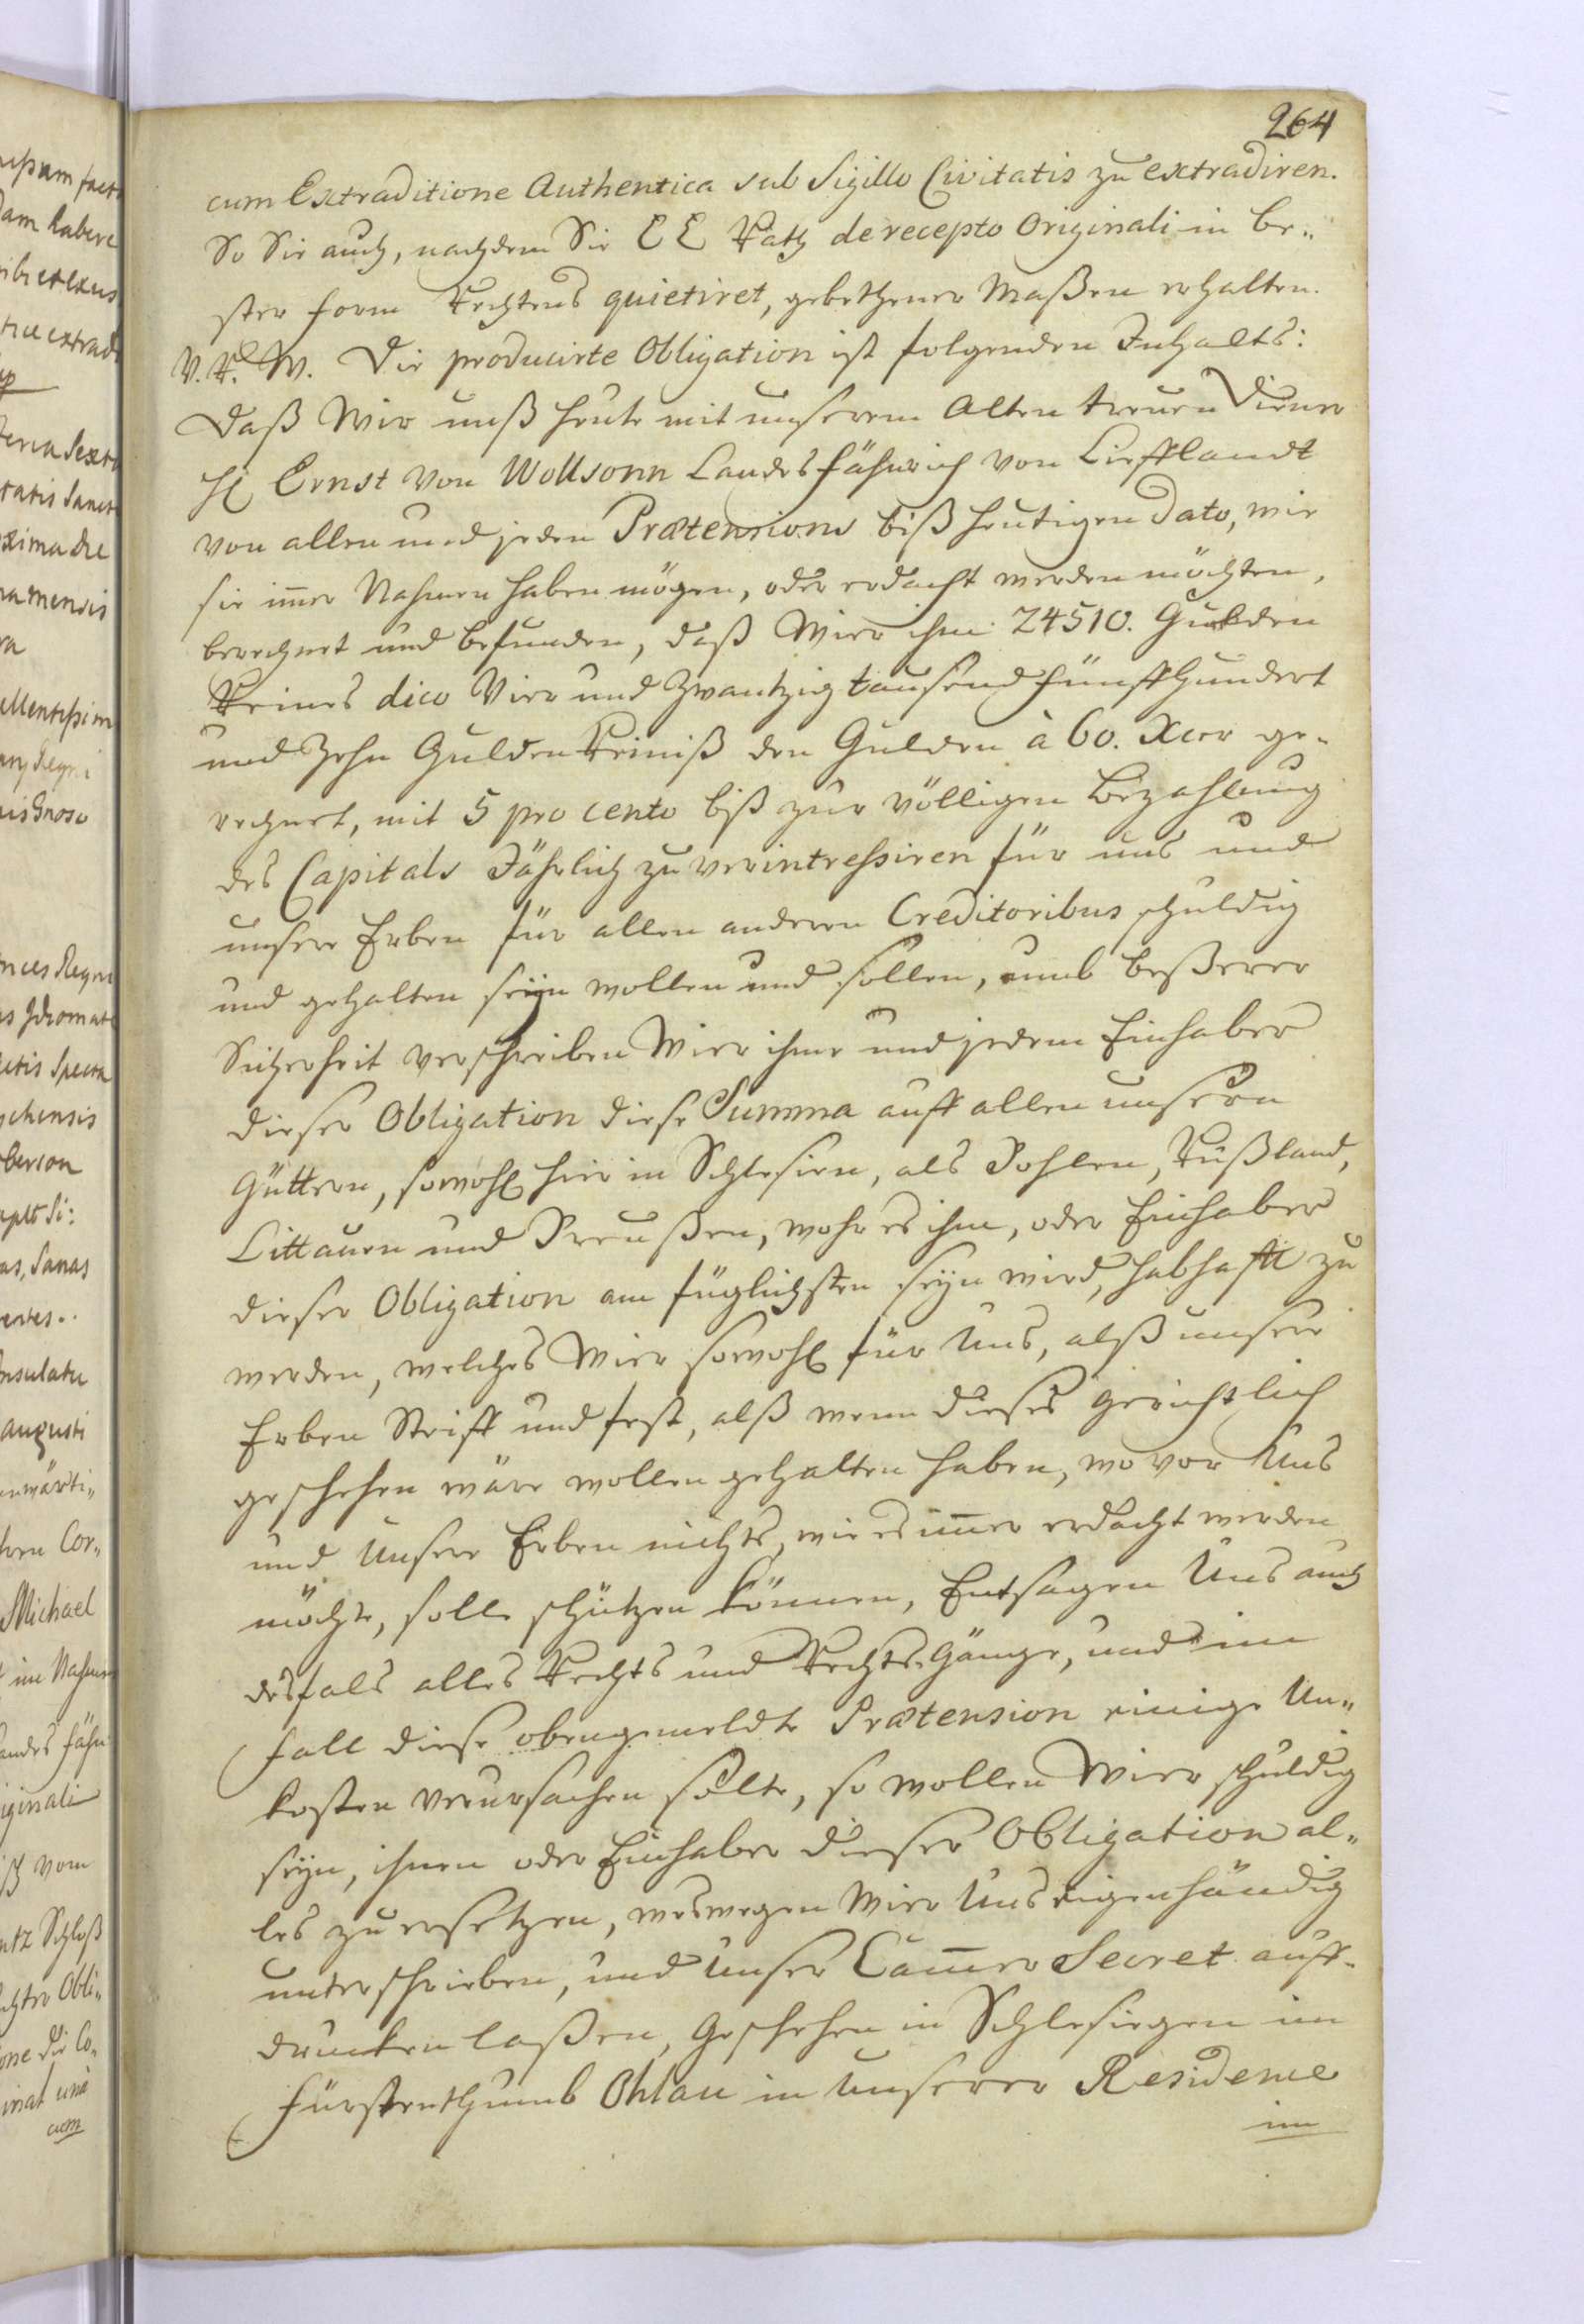 264
cum Extraditione Authentica sub Sigillo Civitatis zu extradiren.
So Sie auch, nachdem Sie E E Rath de recepto Originali in be„
ster form Rechtens quietiret, gebethener Maßen erhalten.
V. R. W. Die producirte Obligation ist folgenden Inhalts:
Daß Wir unß heute mit unserem Alten treuen Diener
H Ernst von Wollsonn Landes fähnrich von Liefflandt
von allen und jeden Prætensions biß heutigen Dato, wie
sie im̄er Nahmen haben mögen, oder erdacht werden möchten,
berechnet und befunden, daß Wier ihm 24510. Gulden
Reines dico Vier und Zwantzig tausend fünffhundert
und Zehn Gulden Reiniß den Gulden à 60. Xcer ge„
rechnet, mit 5 pro cento biß zur völligen Bezahlung
des Capitals Jährlich zu verintressiren für uns und
unsere Erben für allen anderen Creditoribus schuldig
und gehalten seÿn wollen und sollen, umb beßerer
Sicherheit verschreiben Wier ihme und jedem Einhaber
dieser Obligation diese Summa auff allen unsern
Güttern, sowohl hier in Schlesien, als Pohlen, Rußland,
Littauen und Preußen, woher es ihm, oder Einhaber
dieser Obligation am füglichsten seÿn wird, habhafft zu
werden, welches Wier sowohl für Uns, alß unsere
Erben Steiff und fest, alß wenn dieses gerichtlich
geschehen wäre wollen gehalten haben, wo vor Uns
und Unsere Erben nichts, wie es im̄er erdacht werden
möchte, solle schützen können, Entsagen Uns auch
desfals alles Rechts und Rechts Gänge, und im
fall diese obengemeldte Prætension einige Un„
kosten verursachen solte, so wollen Wier schuldig
seÿn, ihnen oder Einhaber dieser Obligation al„
les zu ersetzen, weswegen Wier Uns eigenhändig
unterschrieben, und Unser Cam̄er Secret auff„
drucken laßen, Geschehen in Schlesiegen im
fürstenthumb Ohlau in Unserer Residence
im